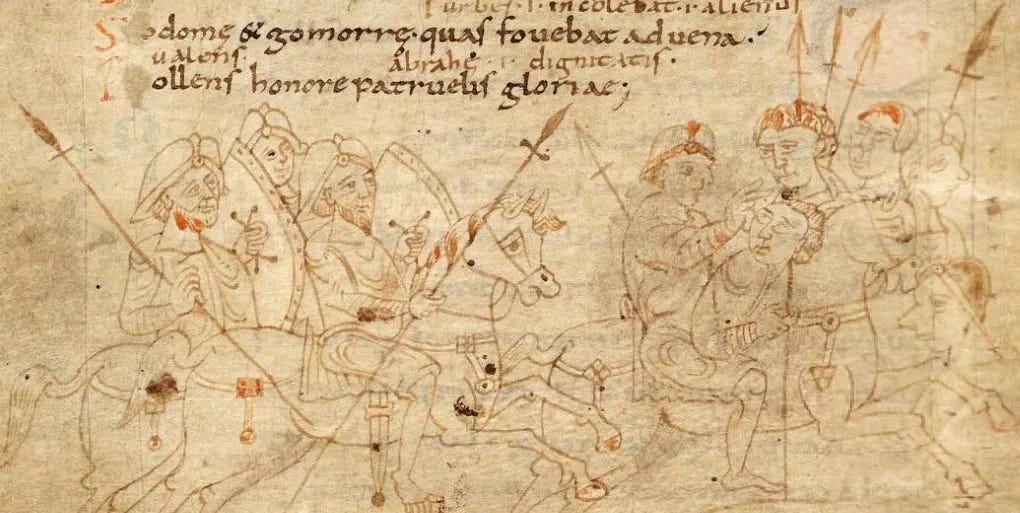 urbes .i. incolebat .i. alienus
Sodomę & gomorrę. quas fouebat aduena.
ualens. abrahę .i. dignitatis.
Pollens honore patruelis gloriae;